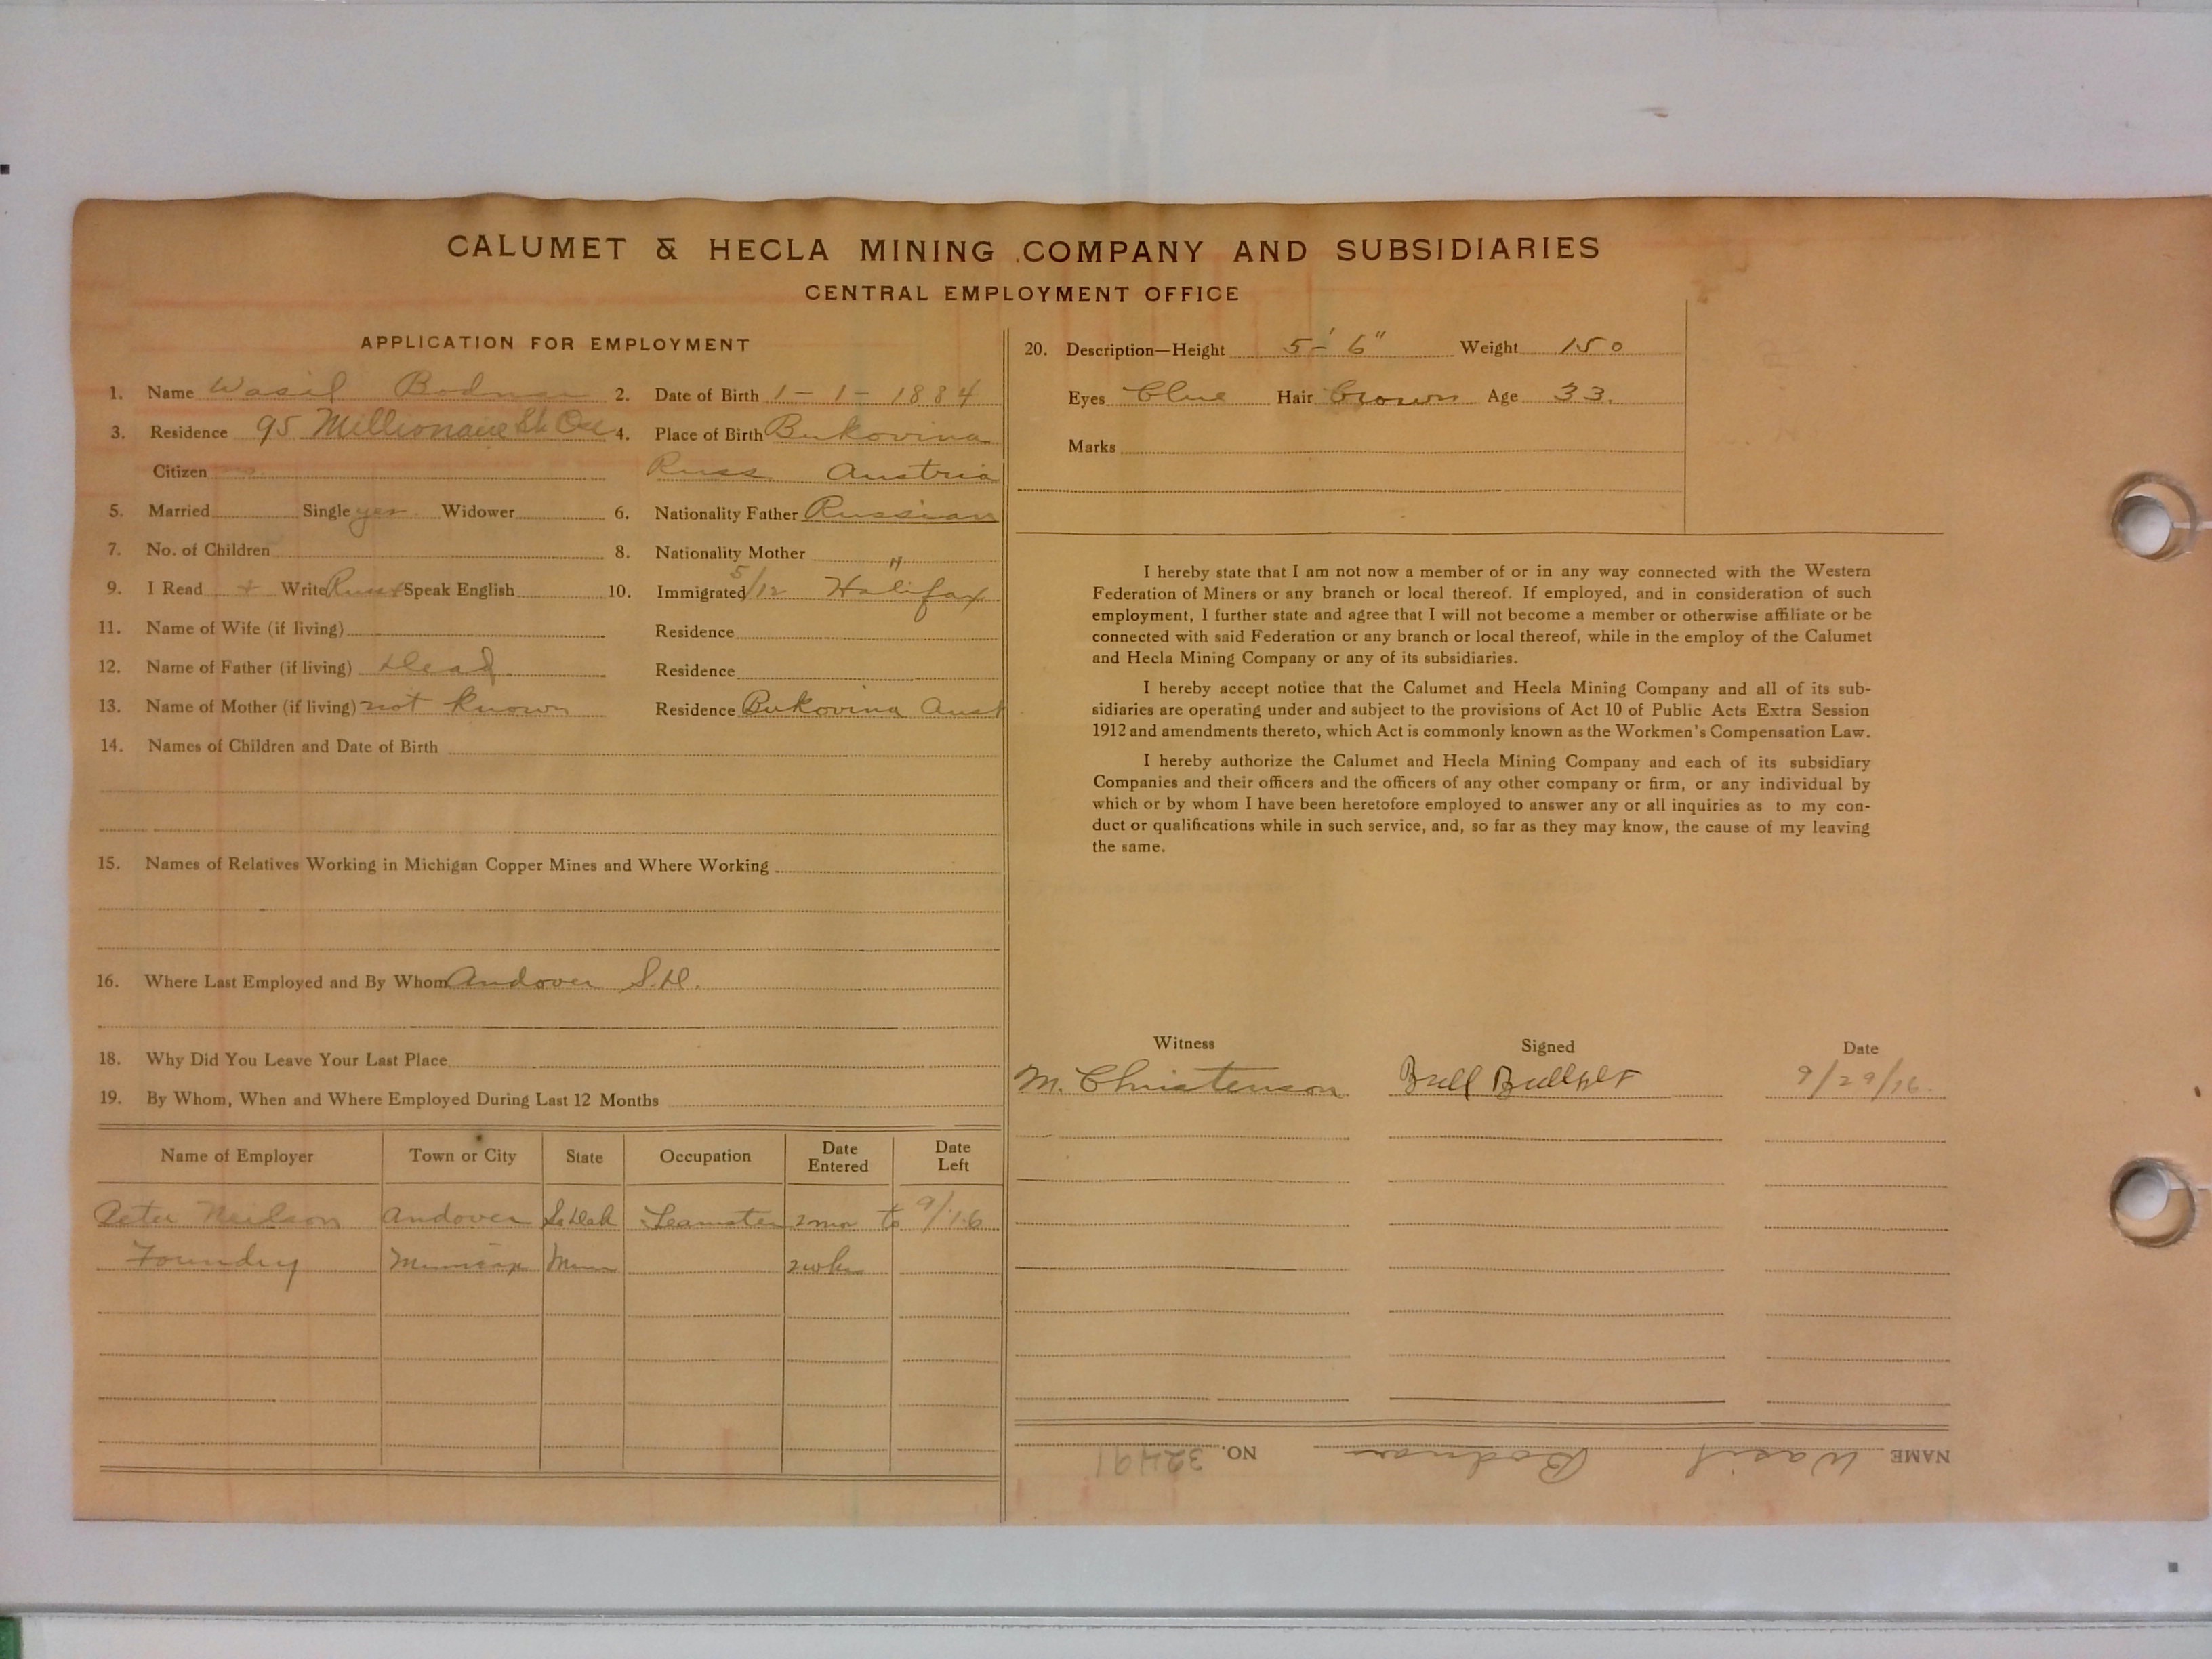 CALUMET & HECLA MINING COMPANY AND SUBSIDIARIES
CENTRAL EMPLOYMENT OFFICE
APPLICATION FOR EMPLOYMENT
1. Name Wasil Bodman 2. Date of Birth 1-1-1884
3. Residence 95 Millionaire St 4. Place of Birth Bukovina
Citizen Russ Austria
5. Married Single yes Widower 6. Nationality Father Russian
7. No. of Children 8. Nationality Mother "
9. I Read + Write Russ Speak English 10. Immigrated 5/12 Halifax
11. Name of Wife (if living) Residence
12. Name of Father (if living) Dead Residence
13. Name of Mother (if living) not known Residence Bukovina Aust
14. Names of Children and Date of Birth
15. Names of Relatives Working in Michigan Copper Mines and Where Working
16. Where Last Employed and By Whom Andover S.D.
18. Why Did You Leave Your Last Place
19. By Whom, When and Where Employed During Last 12 Months
Name of Employer Town or City State Occupation Date Entered Date Left
Peter Neilson Andover So Dak Teamster 2 mo to 9/16
Foundry Minn 2 wks
20. Description—Height 5' 6" Weight 150
Eyes Blue Hair Brown Age 33.
Marks
I hereby state that I am not now a member of or in any way connected with the Western
Federation of Miners or any branch or local thereof. If employed, and in consideration of such
employment, I further state and agree that I will not become a member or otherwise affiliate or be
connected with said Federation or any branch or local thereof, while in the employ of the Calumet
and Hecla Mining Company or any of its subsidiaries.
I hereby accept notice that the Calumet and Hecla Mining Company and all of its sub-
sidiaries are operating under and subject to the provisions of Act 10 of Public Acts Extra Session
1912 and amendments thereto, which Act is commonly known as the Workmen's Compensation Law.
I hereby authorize the Calumet and Hecla Mining Company and each of its subsidiary
Companies and their officers and the officers of any other company or firm, or any individual by
which or by whom I have been heretofore employed to answer any or all inquiries as to my con-
duct or qualifications while in such service, and, so far as they may know, the cause of my leaving
the same.
Witness Signed Date
M. Christenson 9/29/16.
NAME Wasil Bodman NO. 32491